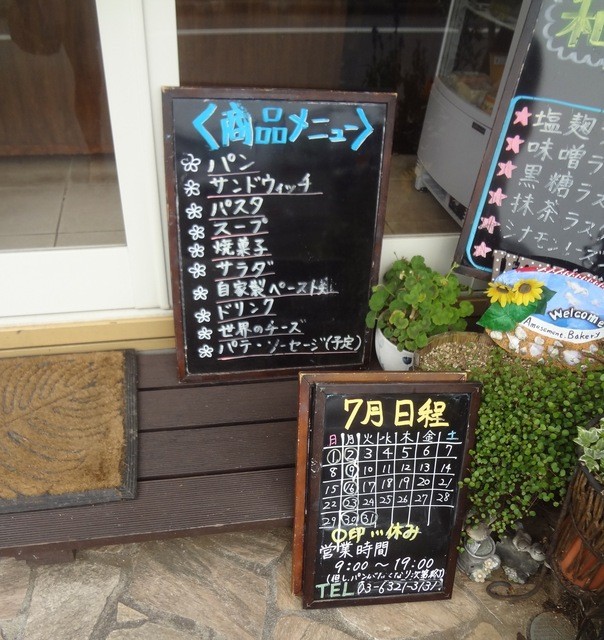 〈商品メニュー〉
パン
サンドウィッチ
パスタ
スープ
焼菓子
サラダ
自家製ペースト
ドリンク
世界のチーズ
パテ・ソーセージ(予定)
塩麹
味噌ラ
黒糖ラ
抹茶ラス
シナモン
Welcome
Amusement Bakery
7月日程
日 月 火 水 木 金 土
1 2 3 4 5 6 7
8 9 10 11 12 13 14
15 16 17 18 19 20 21
22 23 24 25 26 27 28
29 30 31
○印ハ休み
営業時間
9:00〜19:00
(但しパンがなくなり次第終了)
TEL 03-6321-3131